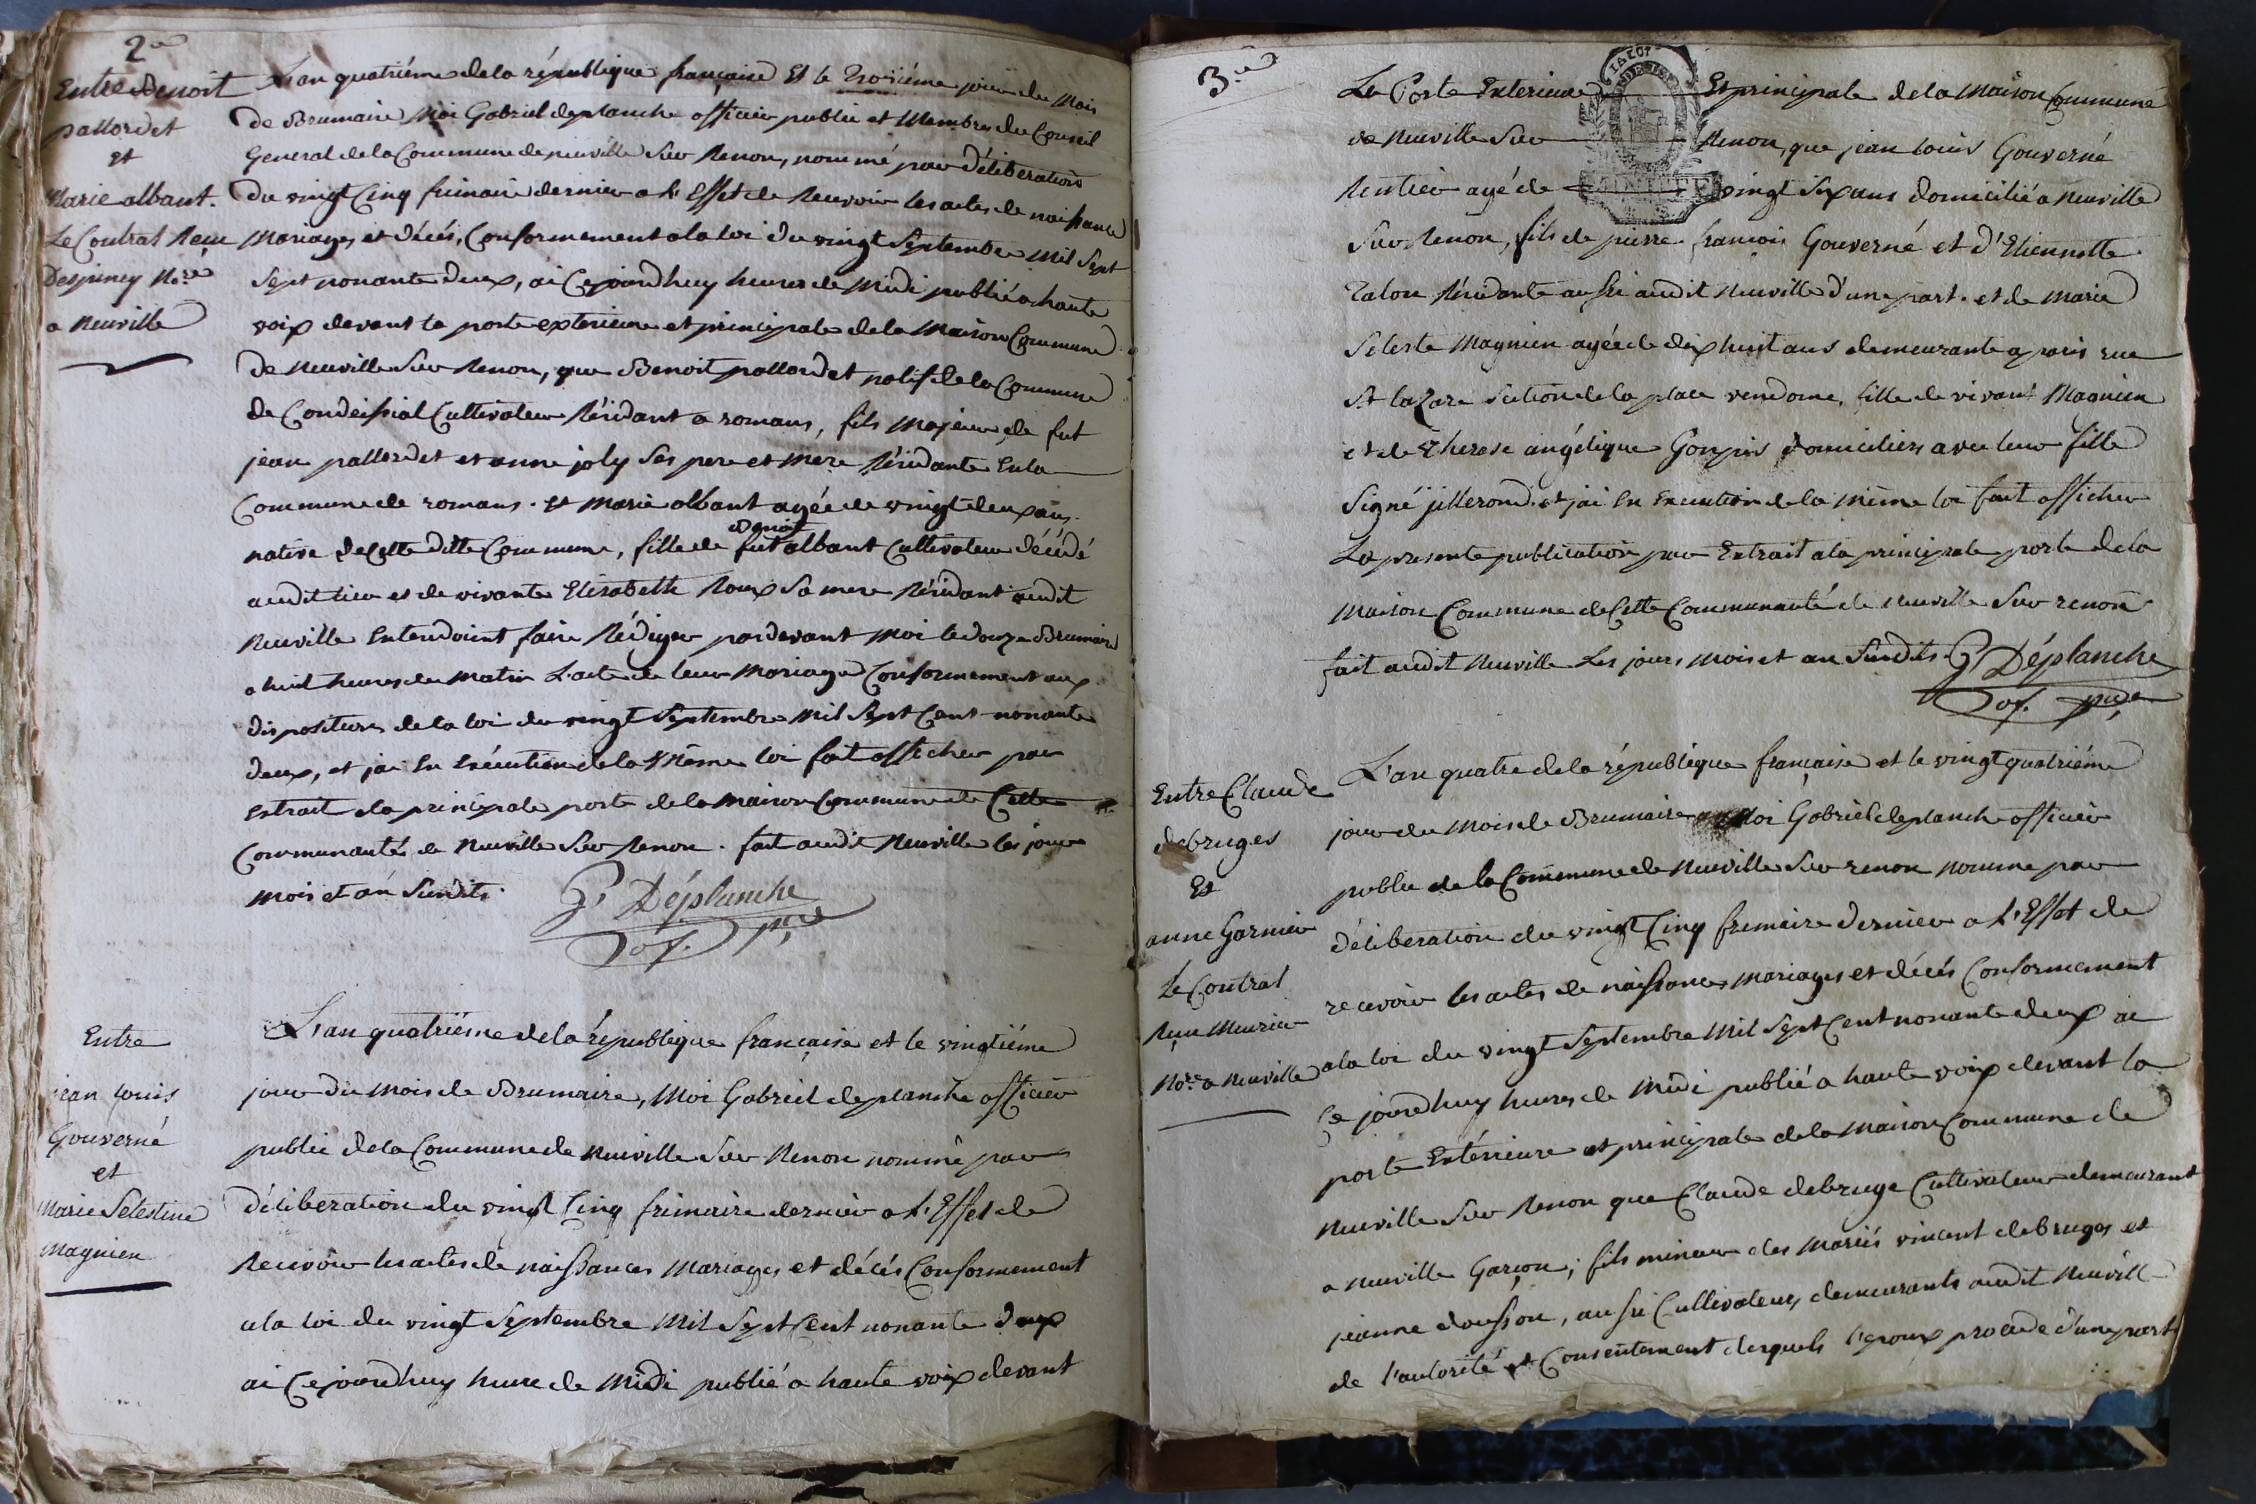 2e
Entre Benoit
pallordet
et
Marie albant.
Le Contrat Recu
Despiney No.re
a Neuville
L'an quatriéme de la république française Et le Troisiéme jour du Mois
de Brumaire Moi Gabriel deplanche officier public et Membres du Conseil
General de la Commune de neuville Sur Renon, nommé par déliberation
du vingt Cinq frimaire dernier a l'Effet de Recevoir les actes de naissance
Mariages et décés, Conformement a la loi du vingt Septembre Mil Sept
Sept nonante deux, ai Cejourdhuy heures de Midi publié a haute
voix devant la porte exterieure et principale de la Maison Commune
de Neuville Sur Renon, que Benoit pallordet natif de la Commune
de Condeissiat Cultivateur Résidant a romans, fils Majeur de fut
jean pallordet et anne joly Ses pere et Mere Résidante En la
Commune de romans. et Marie albant agée de vingt deux ans.
native de Cette ditte Commune, fille de fut Benoit albant Cultivateur décédé
audit lieu et de vivante Elisabeth Roux Sa mere Résidant audit
Neuville Entendoint faire Rédiger pardevant Moi le douze Brumaire
a huit heures du Matin L'acte de leur Mariage Conformement aux
dispositions de la loi du vingt Septembre Mil Sept Cent nonante
deux, et jai En Exécution de la Même loi fait afficher par
Extrait a la principale porte de la Maison Commune de Cette
Communauté de Neuville Sur Renon. fait audit Neuville les jour
Mois et an Susdits.
G. Déplanche
of. pu
Entre
jean louis
Gouverné
et
Marie Selestine
Magnien
L'an quatriéme de la république française et le vingtiéme
jour du Mois de Brumaire, Moi Gabriel deplanche officier
public de la Commune de Neuville Sur Renon nommé par
déliberation du vingt Cinq frimaire dernier a l'Effet de
Recevoir les actes de naissances Mariages et décés Conformement
a la loi du vingt Septembre Mil Sept Cent nonante deux
ai Cejourdhuy heure de Midi publié a haute voix devant
3e
La Porte Exterieure Et principale de la Maison Commune
de Neuville Sur Renon, que jean louis Gouverné
Rentier agé de vingt Six ans domicilié a Neuville
Sur Renon, fils de pierre françois Gouverné et d'Etiennette
Talon Résidante aussi audit Neuville d'une part. et de Marie
Seleste Magnien agée de dix huit ans demeurante a paris rue
St lazare Section de la place vendome, fille de vivant Magnien
et de Therese angélique domiciliers avec leur fille
Signé et jai En Execution de la Même loi fait afficher
La presente publication par Extrait a la principale porte de la
Maison Commune de Cette Communauté de Neuville Sur renon
fait audit Neuville Les jours Mois et an Susdits. G Déplanche
of. pu
Entre Claude
debruges
Et
anne Garnier
Le Contrat
Recu Meunier
No.re a Neuville
L'an quatre de la république française et le vingt quatriéme
jour du Mois de Brumaire Moi Gabriel deplanche officier
public de la Commune de Neuville Sur renon nomme par
déliberation du vingt Cinq frimaire dernier a l'Effet de
recevoir les actes de naissances Mariages et décés Conformement
a la loi du vingt Septembre Mil Sept Cent nonante deux ai
Ce jourdhuy heures de Midi publié a haute voix devant la
porte Extérieure et principale de la Maison Commune de
Neuville Sur Renon que Claude debruge Cultivateur demeurant
a Neuville Garçon, fils mineur des Mariés vincent debruges et
jeanne dousson, aussi Cultivateurs demeurants audit Neuville
de l'autorité et Consentement desquels l'Epoux procede d'une part